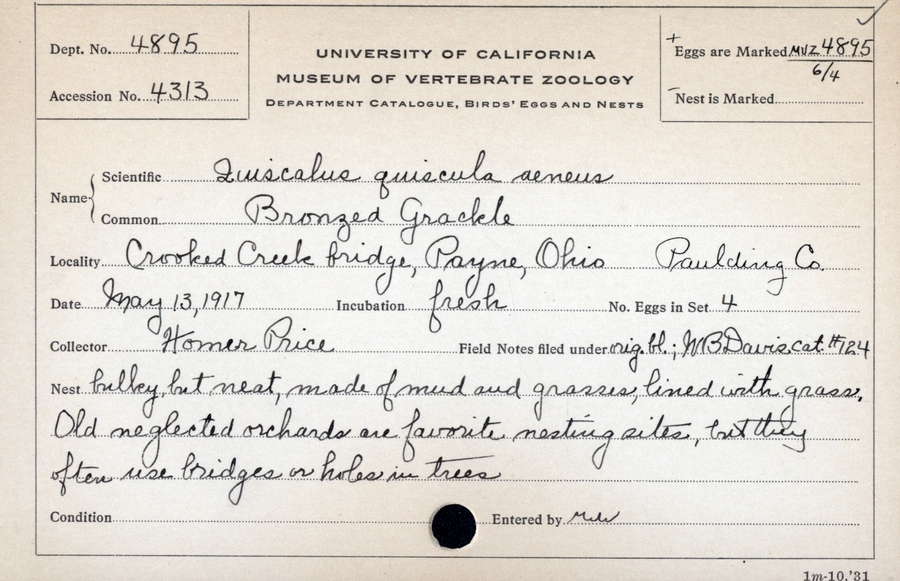 Dept. No. 4895
Accession No. 4313
UNIVERSITY OF CALIFORNIA
MUSEUM OF VERTEBRATE ZOOLOGY
DEPARTMENT CATALOGUE, BIRDS' EGGS AND NESTS
+ Eggs are Marked MVZ 4895
6/4
− Nest is Marked
Name { Scientific Quiscalus quiscula aeneus
Common Bronzed Grackle
Locality Crooked Creek bridge, Payne, Ohio Paulding Co.
Date May 13, 1917 Incubation fresh No. Eggs in Set 4
Collector Homer Price Field Notes filed under orig. bl.; WBDavis cat. #124
Nest bulky, but neat, made of mud and grasses, lined with grass.
Old neglected orchards are favorite nesting sites, but they
often use bridges or holes in trees
Condition Entered by
1m-10.'31